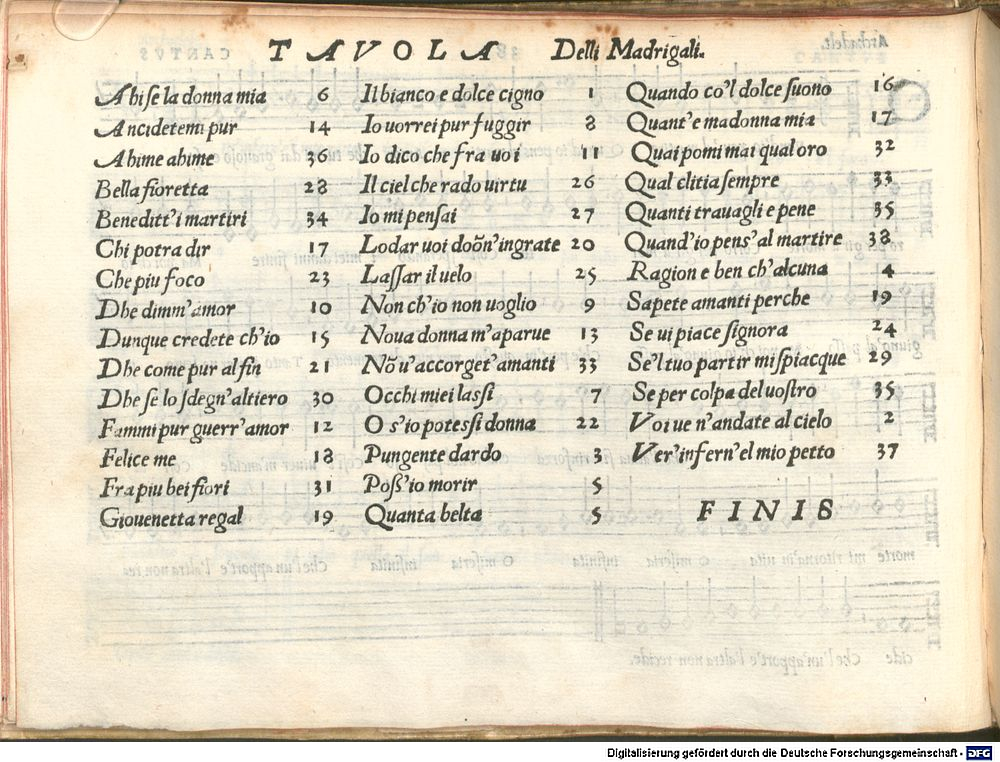 TAVOLA Delli Madrigali.
Ahi se la donna mia 6
Ancidetemi pur 14
Ahime ahime 36
Bella fioretta 28
Beneditt'i martiri 34
Chi potra dir 17
Che piu foco 23
Dhe dimm'amor 10
Dunque credete ch'io 15
Dhe come pur al fin 21
Dhe se lo sdegn'altiero 30
Fammi pur guerr'amor 12
Felice me 18
Fra piu bei fiori 31
Giouenetta regal 19
Il bianco e dolce cigno 1
Io uorrei pur fuggir 8
Io dico che fra uoi 11
Il ciel che rado uirtu 26
Io mi pensai 27
Lodar uoi doñ'ingrate 20
Lassar il uelo 25
Non ch'io non uoglio 9
Noua donna m'aparue 13
Nō u'accorget'amanti 33
Occhi miei lassi 7
O s'io potessi donna 22
Pungente dardo 3
Poss'io morir 5
Quanta belta 5
Quando co'l dolce suono 16
Quant'e madonna mia 17
Quai pomi mai qual oro 32
Qual clitia sempre 33
Quanti trauagli e pene 35
Quand'io pens'al martire 38
Ragion e ben ch'alcuna 4
Sapete amanti perche 19
Se ui piace signora 24
Se'l tuo partir mi spiacque 29
Se per colpa del uostro 35
Voi ue n'andate al cielo 2
Ver'infern'el mio petto 37
FINIS
Digitalisierung gefördert durch die Deutsche Forschungsgemeinschaft - DFG